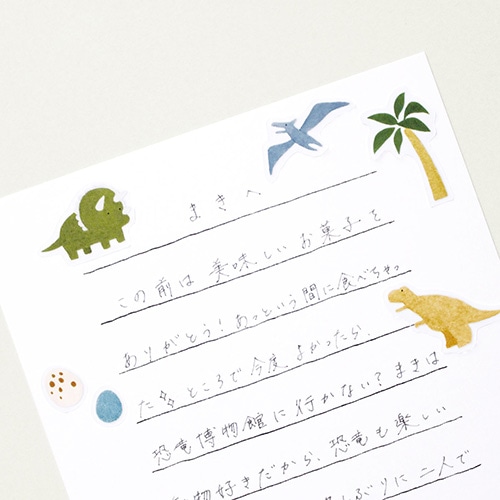 まきへ
この前は美味しいお菓子を
ありがとう！あっという間に食べちゃっ
た✨ところで今度よかったら、
恐竜博物館に行かない？まきは
物好きだから、恐竜も楽しい
しぶりに二人で